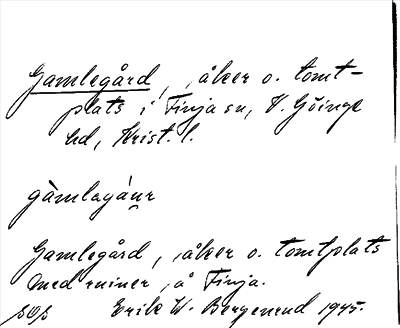 Gamlegård, åker o. tomt-
plats i Finja sn, V. Göinge
hd, Krist. l.
gàmlagáɳr
Gamlegård, åker o. tomtplats
med ruiner, å Finja.
Erik W. Bergenrud 1945.